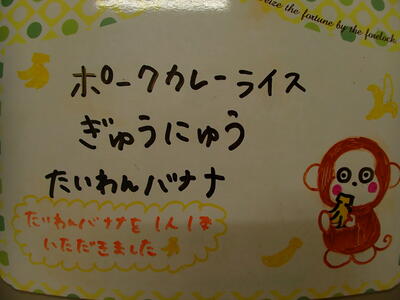 eize the fortune by the forelock.
ポークカレーライス
ぎゅうにゅう
たいわんバナナ
たいわんバナナを1人1本
いただきました